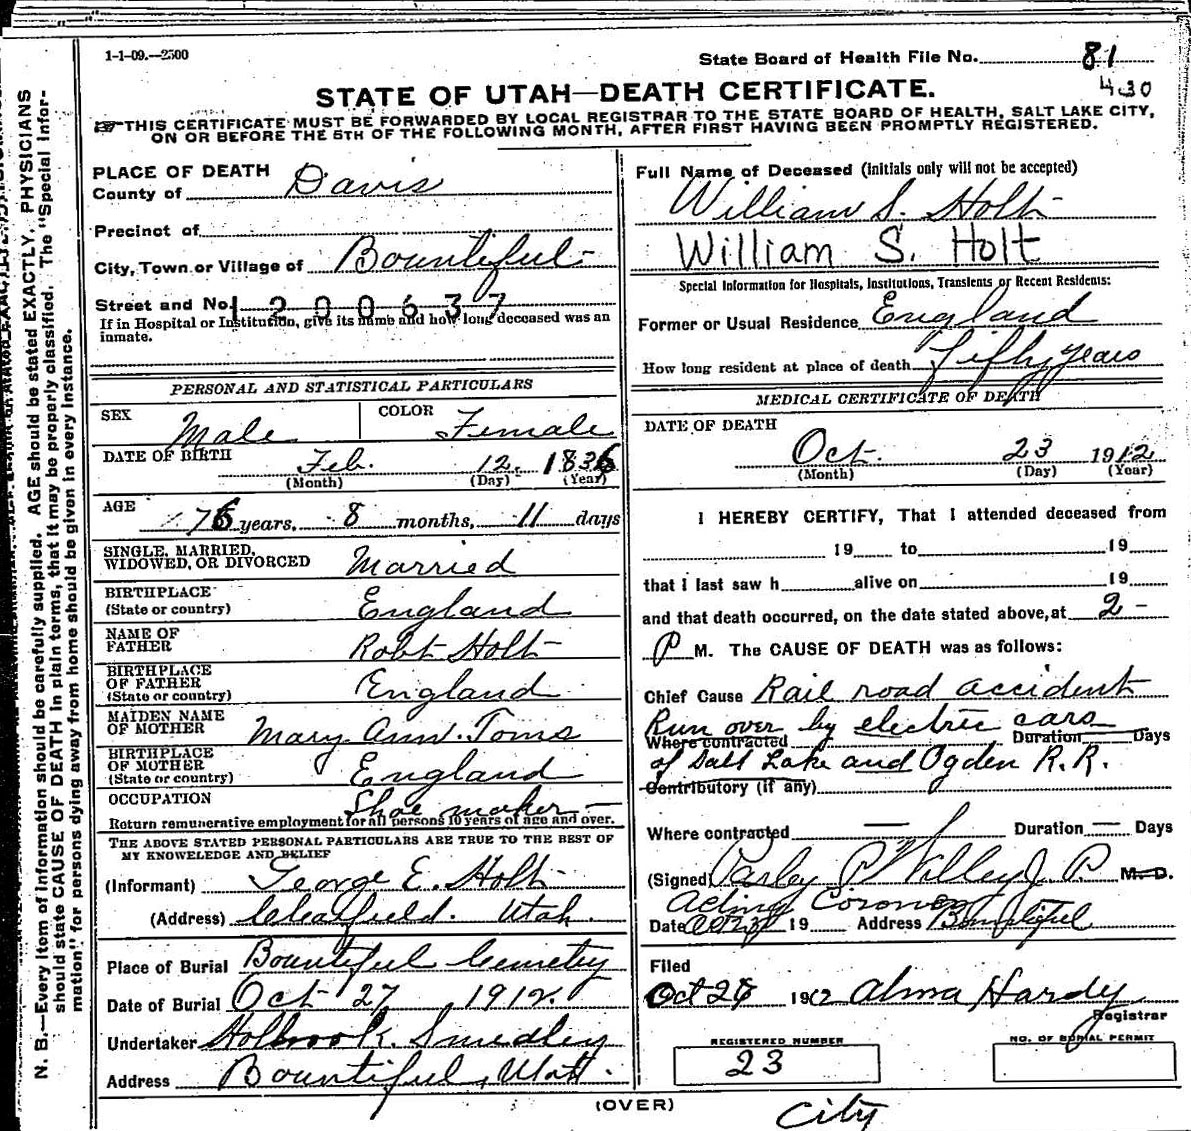 1-1-09.—2500
State Board of Health File No. 81
430
STATE OF UTAH—DEATH CERTIFICATE.
THIS CERTIFICATE MUST BE FORWARDED BY LOCAL REGISTRAR TO THE STATE BOARD OF HEALTH, SALT LAKE CITY,
ON OR BEFORE THE 5TH OF THE FOLLOWING MONTH, AFTER FIRST HAVING BEEN PROMPTLY REGISTERED.
N. B.—Every item of information should be carefully supplied. AGE should be stated EXACTLY. PHYSICIANS
should state CAUSE OF DEATH in plain terms, that it may be properly classified. The "Special Infor-
mation" for persons dying away from home should be given in every instance.
PLACE OF DEATH
County of Davis
Precinct of
City, Town or Village of Bountiful
Street and No. 1200637
If in Hospital or Institution, give its name and how long deceased was an
inmate.
PERSONAL AND STATISTICAL PARTICULARS
SEX Male COLOR Female
DATE OF BIRTH Feb. 12. 1836
(Month) (Day) (Year)
AGE 76 years, 8 months, 11 days
SINGLE, MARRIED,
WIDOWED, OR DIVORCED Married
BIRTHPLACE
(State or country) England
NAME OF
FATHER Robt Holt
BIRTHPLACE
OF FATHER
(State or country) England
MAIDEN NAME
OF MOTHER Mary Ann. Toms
BIRTHPLACE
OF MOTHER
(State or country) England
OCCUPATION Shoe maker —
Return remunerative employment for all persons 10 years of age and over.
THE ABOVE STATED PERSONAL PARTICULARS ARE TRUE TO THE BEST OF
MY KNOWELEDGE AND BELIEF
(Informant) George E. Holt
(Address) Clearfield. Utah.
Place of Burial Bountiful Cemetry
Date of Burial Oct 27, 1912.
Undertaker Holbrook. Smedley
Address Bountiful, Utah.
Full Name of Deceased (initials only will not be accepted)
William S. Holt
William S. Holt
Special Information for Hospitals, Institutions, Transients or Recent Residents:
Former or Usual Residence England
How long resident at place of death Fifty years
MEDICAL CERTIFICATE OF DEATH
DATE OF DEATH
Oct. 23 1912
(Month) (Day) (Year)
I HEREBY CERTIFY, That I attended deceased from
19 to 19
that i last saw h alive on 19
and that death occurred, on the date stated above, at 2 -
P M. The CAUSE OF DEATH was as follows:
Chief Cause Rail road accident
Run over by electric cars
Where contracted Duration Days
of Salt Lake and Ogden R.R.
Contributory (if any)
Where contracted — Duration — Days
(Signed) Parley P Willey J. P. M. D.
Acting Coroner
Date Oct 19 Address Bountiful
Filed
Oct 26 1912 Alma Hardy
Registrar
REGISTERED NUMBER
23
NO. OF BURIAL PERMIT
(OVER)
City